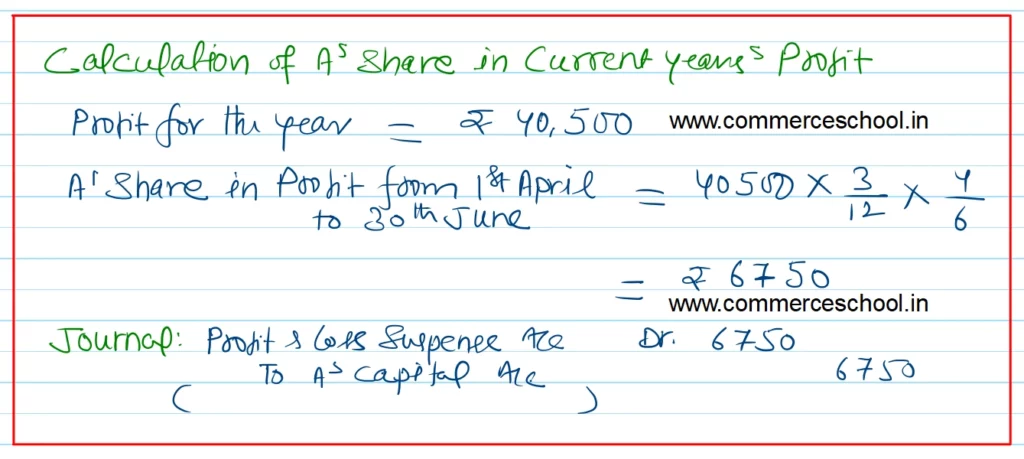 Calculation of A's Share in Current years's Profit
Profit for the year = ₹ 40,500 www.commerceschool.in
A' Share in Profit from 1st April to 30th June = 40500 × 3/12 × 4/6
= ₹ 6750
www.commerceschool.in
Journal: Profit & Loss Suspense A/c Dr. 6750
To A's Capital A/c 6750
( )